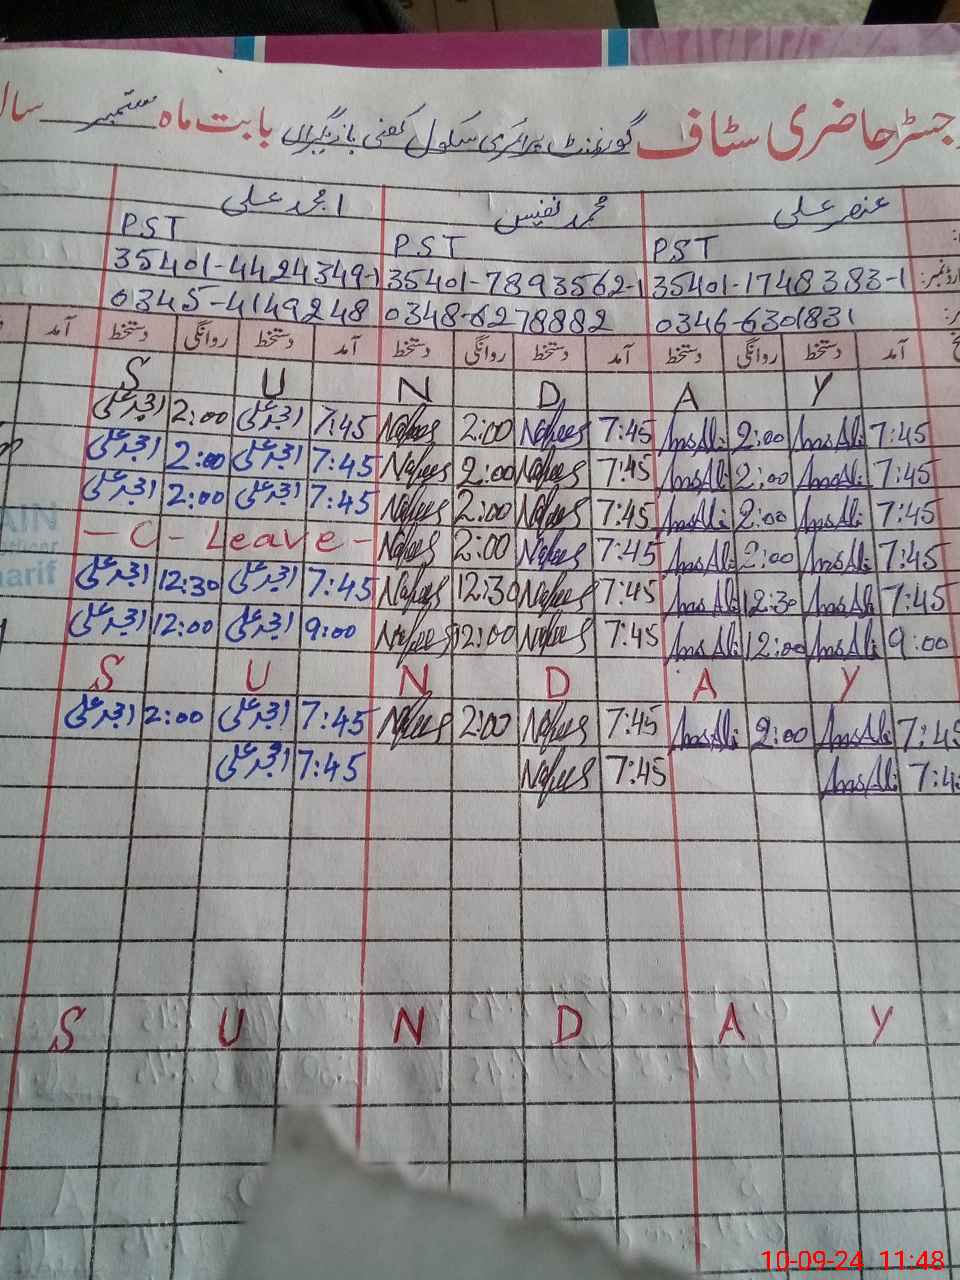 رجسٹر حاضری سٹاف گورنمنٹ پرائمری سکول کفنی بازیگراں بابت ماہ ستمبر سال
عنصر علی محمد نفیس امجد علی
PST PST PST
35401-1748383-1 35401-7893562-1 35401-4424349-1
0346-6301831 0348-6278882 0345-4149248
آمد دستخط روانگی دستخط آمد دستخط روانگی دستخط آمد دستخط روانگی دستخط آمد
S U N D A Y
امجد علی 2:00 امجد علی 7:45 Nafees 2:00 Nafees 7:45 AnsAli 2:00 AnsAli 7:45
امجد علی 2:00 امجد علی 7:45 Nafees 2:00 Nafees 7:45 AnsAli 2:00 AnsAli 7:45
امجد علی 2:00 امجد علی 7:45 Nafees 2:00 Nafees 7:45 AnsAli 2:00 AnsAli 7:45
- C - Leave - Nafees 2:00 Nafees 7:45 AnsAli 2:00 AnsAli 7:45
امجد علی 12:30 امجد علی 7:45 Nafees 12:30 Nafees 7:45 AnsAli 12:30 AnsAli 7:45
امجد علی 12:00 امجد علی 9:00 Nafees 12:00 Nafees 7:45 AnsAli 12:00 AnsAli 9:00
S U N D A Y
امجد علی 2:00 امجد علی 7:45 Nafees 2:00 Nafees 7:45 AnsAli 2:00 AnsAli 7:45
امجد علی 7:45 Nafees 7:45 AnsAli 7:45
S U N D A Y
10-09-24 11:48